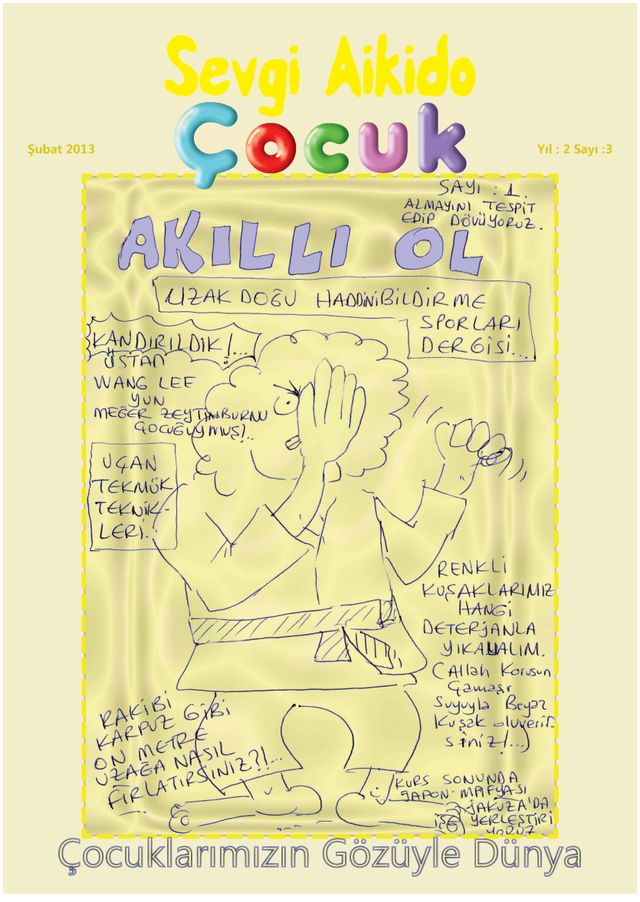 Sevgi Aikido
Çocuk
Şubat 2013
Yıl : 2 Sayı :3
SAYI : 1.
ALMAYINI TESPİT
EDİP DÖVÜYORUZ.
AKILLI OL
UZAK DOĞU HADDİNİ BİLDİRME
SPORLARI
DERGİSİ...
KANDIRILDIK!...
ÜSTAD
WANG LEE
YUN
MEĞER ZEYTİNBURNU
ÇOCUĞUYMUŞ!..
UÇAN
TEKMÜK
TEKNİK-
LERİ..
RENKLİ
KUŞAKLARIMIZI
HANGİ
DETERJANLA
YIKAYALIM.
(Allah Korusun
Çamaşır
Suyuyla Beyaz
Kuşak oluverir
siniz!...)
RAKİBİ
KARPUZ GİBİ
ON METRE
UZAĞA NASIL
FIRLATIRSINIZ?!...
KURS SONUNDA
JAPON MAFYASI
JAKUZA'DA
İŞE YERLEŞTİRİ
YORUZ
Çocuklarımızın Gözüyle Dünya